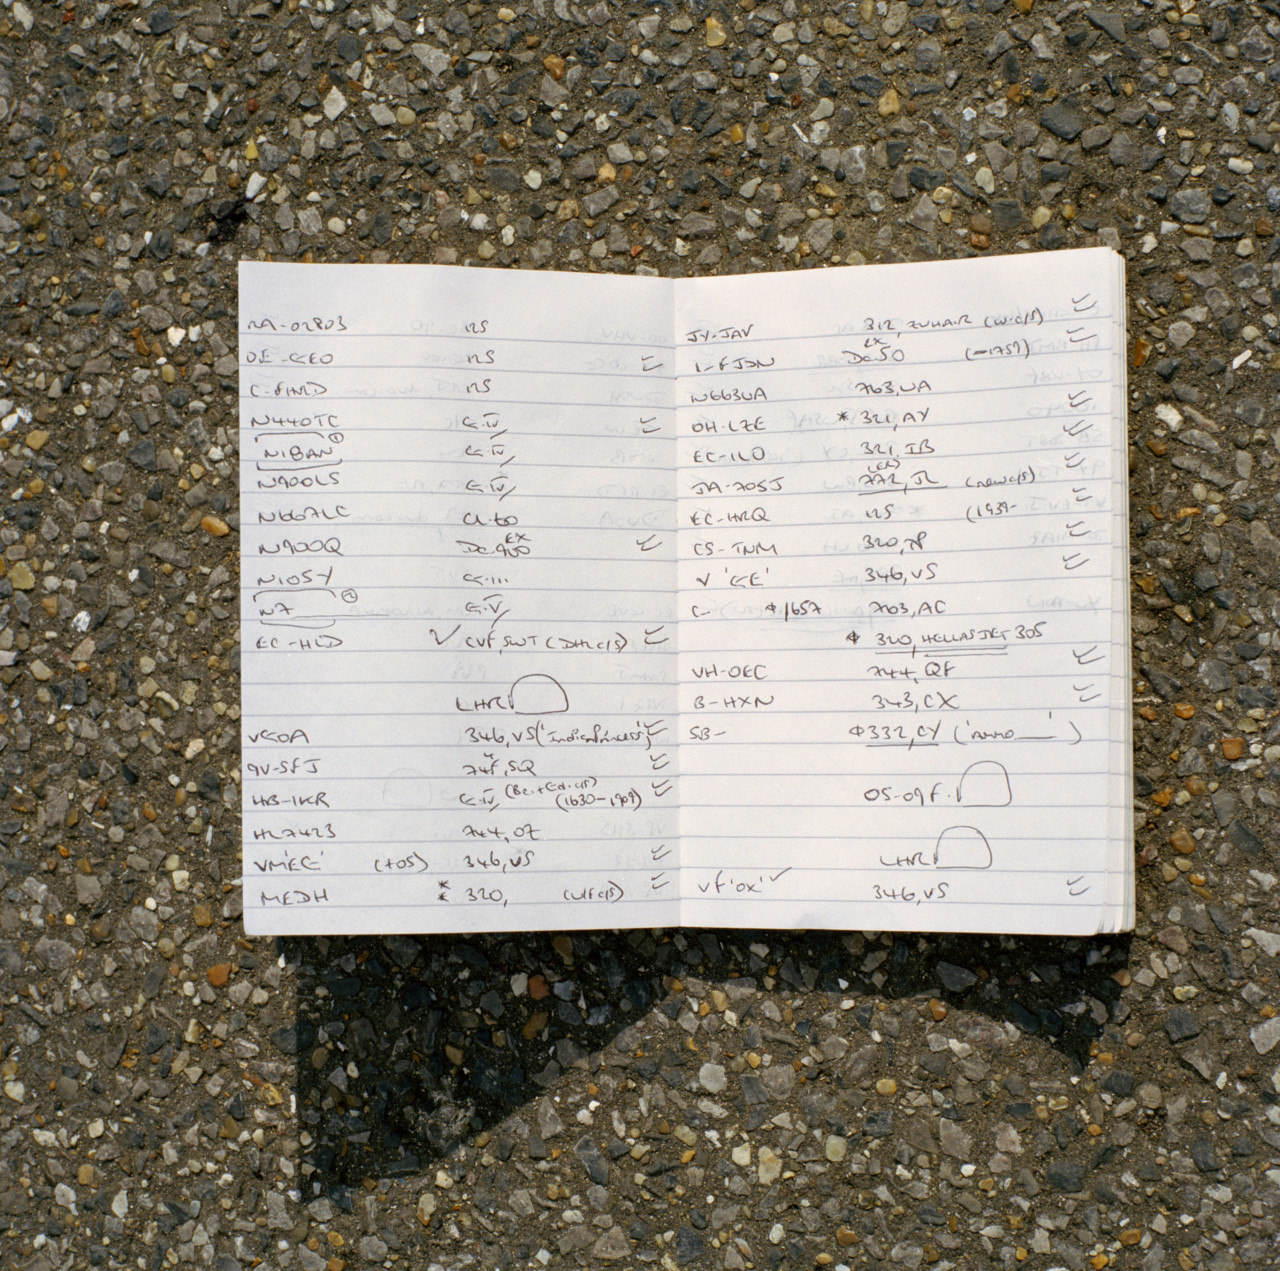 RA-02803 125
OE-GEO 125
C-FHRD 125
N440TC G.IV
N18AN ① G.IV
N900LS G.IV
N667LC CL60
N900Q DC900 EX
N105Y G...
N7 ② G.V
EC-HLD ✓ CVF, SWT (DHL c/s)
LHR
VGOA 346, VS ('Indian Princess')
9V-SFJ 74F, SQ
HB-IKR G.IV, (1630-1909)
HL7423 744, OZ
VM'EG' (+05) 346, VS
MEDH * 320, (WLF c/s)
JY-JAV 312, ZUHAIR (w.c/s)
I-FJDN DC50 EX (-1759)
N663UA 763, UA
OH-LZE * 321, AY
EC-ILO 321, IB
JA-705J 772, JL (ER) (new c/s)
EC-HRQ 125 (1939-
CS-TNM 320, TP
V 'GE' 346, VS
C- 1657 763, AC
320, HELLASJET 305
VH-OEC 744, QF
B-HXN 343, CX
5B- 332, CY ( )
05-09F.
LHR
VF'OX' ✓ 346, VS